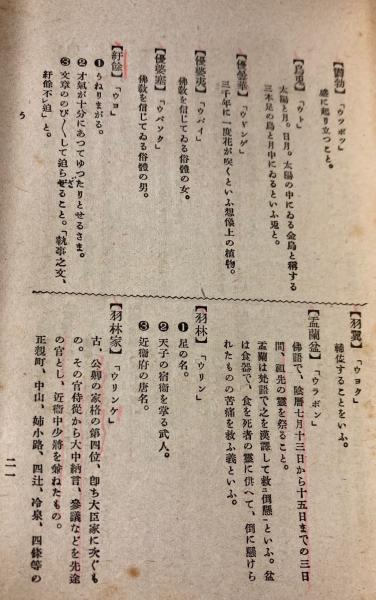 【鬱勃】「ウツボツ」
盛に起り立つこと。
【烏兎】「ウト」
太陽と月。日月。太陽の中にゐる金烏と稱する
三本足の烏と月中にゐるといふ兎と。
【優曇華】「ウドンゲ」
三千年に一度花が咲くといふ想像上の植物。
【優婆夷】「ウバイ」
佛教を信じてゐる俗體の女。
【優婆塞】「ウバソク」
佛教を信じてゐる俗體の男。
【紆餘】「ウヨ」
❶うねりまがる。
❷才氣が十分にあつてゆつたりとせるさま。
❸文章ののび〱して迫らざること。「執事之文、
紆餘不レ迫」と。
う
【羽翼】「ウヨク」
補佐することをいふ。
【盂蘭盆】「ウラボン」
佛語で、陰曆七月十三日から十五日までの三日
間、祖先の靈を祭ること。
盂蘭は梵語で之を漢譯して救二倒懸一といふ。盆
は食器で、食を死者の靈に供へて、倒に懸けら
れたものの苦痛を救ふ義といふ。
【羽林】「ウリン」
❶星の名。
❷天子の宿衞を掌る武人。
❸近衞府の唐名。
【羽林家】「ウリンケ」
古、公卿の家格の第四位、卽ち大臣家に次ぐも
の。その官侍從から大中納言、參議などを先途
の官とし、近衞中少將を兼ねたもの。
正親町、中山、姉小路、四辻、冷泉、四條等の
二一